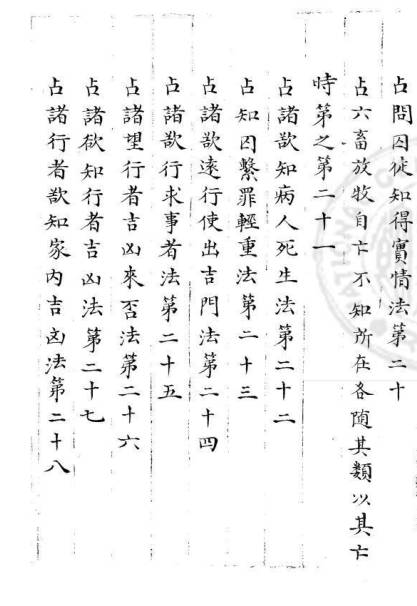 占問囚徒知得實情法第二十
占六畜放牧自亡不知所在各随其類以其亡
時第之第二十一
占諸欲知病人死生法第二十二
占知囚繫罪輕重法第二十三
占諸欲遠行使出吉門法第二十四
占諸欲行求事者法第二十五
占諸望行者吉凶來否法第二十六
占諸欲知行者吉凶法第二十七
占諸行者欲知家内吉凶法第二十八